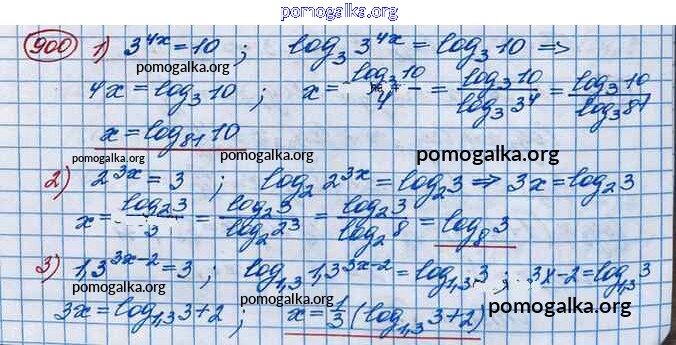 pomogalka.org
900 1) 3^{4x} = 10 ; log_3 3^{4x} = log_3 10 =>
pomogalka.org pomogalka.org
4x = log_3 10 ; x = log_3 10 / 4 = log_3 10 / log_3 3^4 = log_3 10 / log_3 81
x = log_{81} 10
pomogalka.org pomogalka.org pomogalka.org
2) 2^{3x} = 3 ; log_2 2^{3x} = log_2 3 => 3x = log_2 3
x = log_2 3 / 3 = log_2 3 / log_2 2^3 = log_2 3 / log_2 8 = log_8 3
3) 1,3^{3x-2} = 3 ; log_{1,3} 1,3^{3x-2} = log_{1,3} 3 ; 3x-2 = log_{1,3} 3
pomogalka.org pomogalka.org
3x = log_{1,3} 3 + 2 ; x = 1/3 (log_{1,3} 3 + 2)
pomogalka.org
pomogalka.org